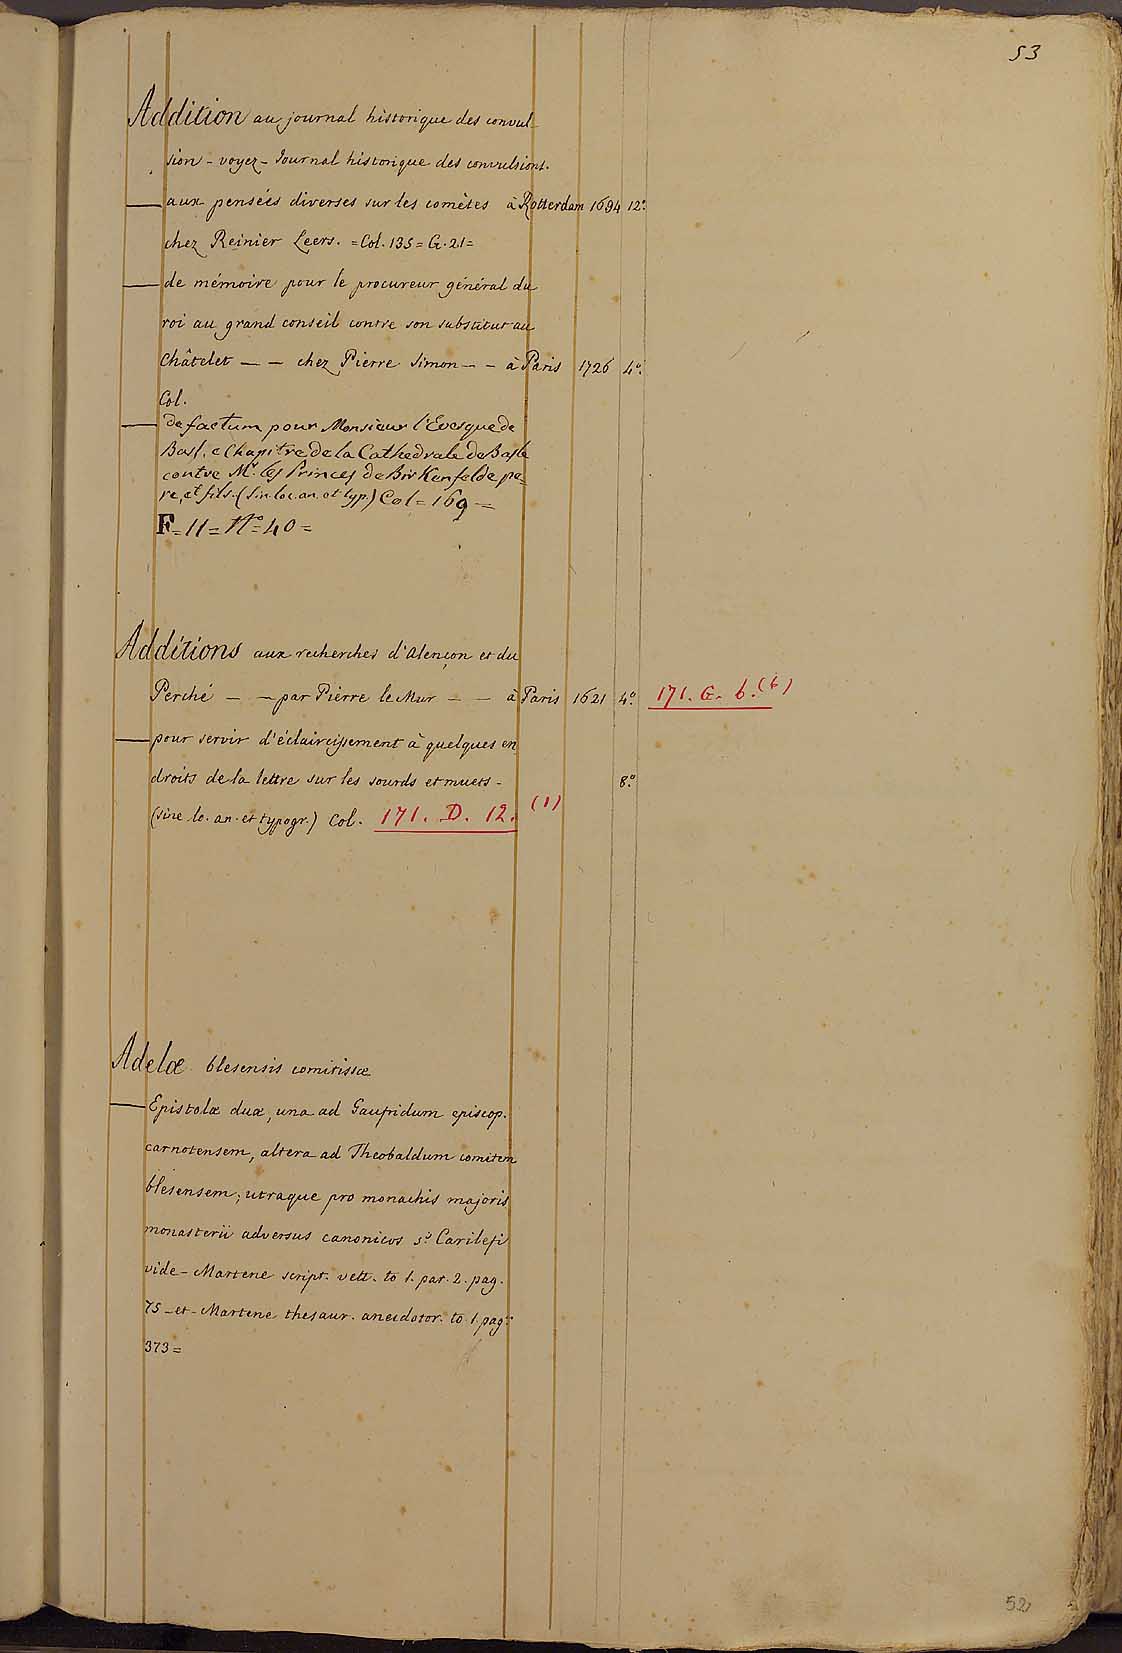 53
Addition au journal historique des convul-
sion - voyez - Journal historique des convulsions.
— aux pensées diverses sur les comètes à Rotterdam 1694 12º.
chez Reinier Leers. = Col. 135 = G. 21 =
— de mémoire pour le procureur général du
roi au grand conseil contre son substitut au
Châtelet — — chez Pierre Simon — — à Paris 1726 4º.
Col.
— de factum pour Monsieur l'Evesque de
Basl. e Chapitre de la Cathedrale de Basle
contre Mr. les Princes de Birkenfelde pe=
re, et fils. (sin. loc. an. et typ.) Col = 169 =
F = 11 = Nº = 40 =
Additions aux recherches d'Alençon et du
Perché — — par Pierre le Mur — — à Paris 1621 4º. 171. G. 6. (6)
— pour servir d'éclaircissement à quelques en
droits de la lettre sur les sourds et muets - 8º.
(sine lo. an. et typogr.) Col. 171. D. 12. (1)
Adelæ blesensis comitissæ
— Epistolæ duæ, una ad Gaufridum episcop.
carnotensem, altera ad Theobaldum comitem
blesensem; utraque pro monachis majoris
monasterii adversus canonicos sº. Carilefi
vide - Martene script. vett. to 1. par. 2. pag.
75 - et - Martene thesaur. anecdotor. to. 1. pag.
373 =
52